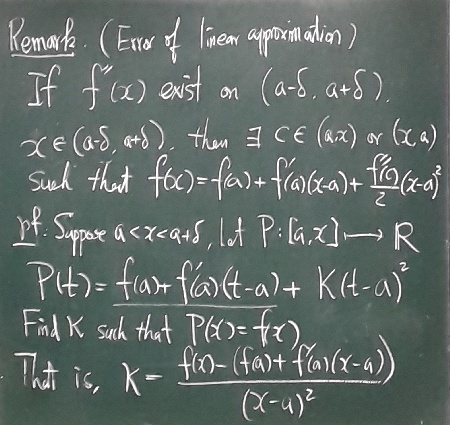 Remark. (Error of linear approximation)
If f''(x) exist on (a-δ, a+δ).
x∈(a-δ, a+δ), then ∃ c∈(a,x) or (x,a)
such that f(x)=f(a)+f'(a)(x-a)+ f''(c)/2 (x-a)²
pf: Suppose a<x<a+δ, let P:[a,x]⟼R
P(t)= f(a)+f'(a)(t-a)+ K(t-a)²
Find K such that P(x)=f(x)
That is, K= f(x)-(f(a)+f'(a)(x-a))
(x-a)²